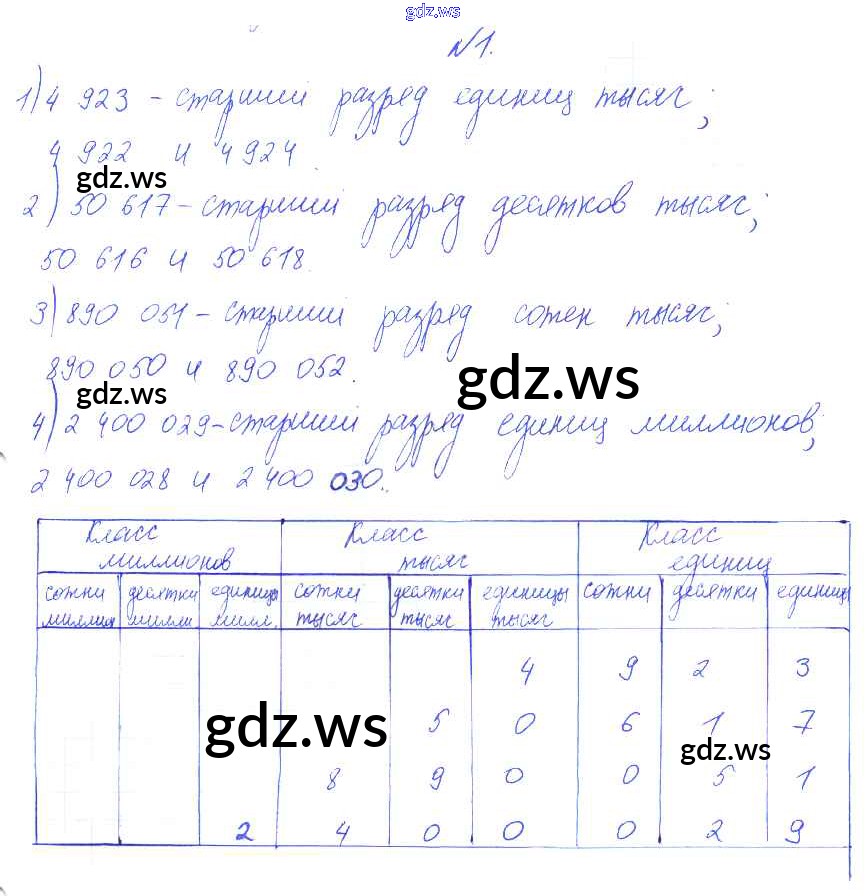 gdz.ws
№1.
1) 4 923 - старший разряд единиц тысяч;
4 922 и 4 924.
gdz.ws
2) 50 617 - старший разряд десятков тысяч;
50 616 и 50 618.
3) 890 051 - старший разряд сотен тысяч;
890 050 и 890 052.
gdz.ws
gdz.ws
4) 2 400 029 - старший разряд единиц миллионов;
2 400 028 и 2 400 030.
Класс миллионов Класс тысяч Класс единиц
сотни миллион десятки милли единицы милл. сотни тысяч десятки тысяч единицы тысяч сотни десятки единицы
4 9 2 3
5 0 6 1 7
gdz.ws
gdz.ws
8 9 0 0 5 1
2 4 0 0 0 2 9